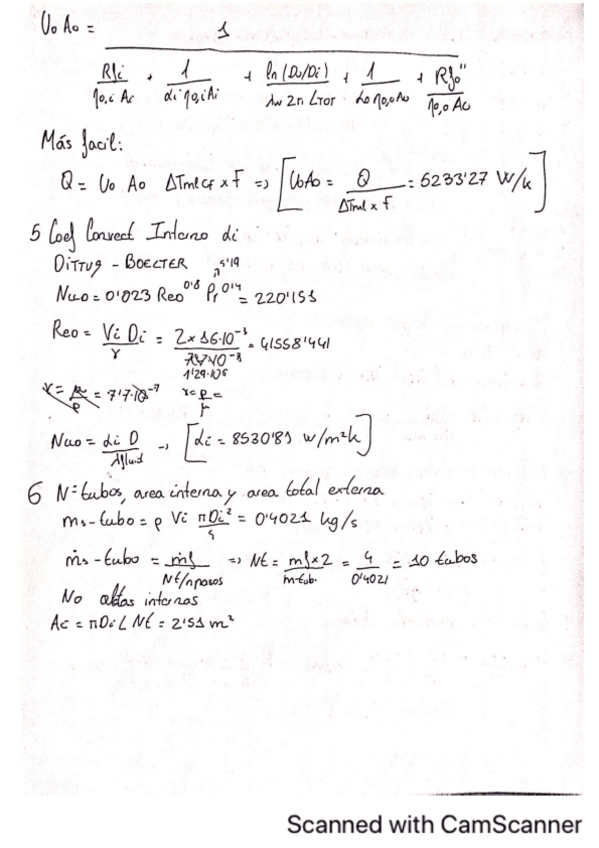 U₀ A₀ = 1
Rfi / η₀,i Ai + 1 / αi η₀,i Ai + ln (D₀/Di) / λw 2π LTOT + 1 / α₀ η₀,₀ A₀ + Rf₀'' / η₀,₀ A₀
Más facil:
Q = U₀ A₀ ΔTml CF x F => [U₀A₀ = Q / ΔTml x F = 6233'27 W/k]
5 Coef Convect Interno αi
DITTUS - BOELTER 5'19
Nu∞ = 0'023 Re₀^0'8 Pr^0'4 = 220'151
Re₀ = Vi Di / γ = 2 x 16·10⁻³ / = 41558'441
1'29·10⁶
γ = μ / ρ = 7'7·10⁻⁷ γ = ρ / μ =
Nu∞ = αi D / λfluid -> [αi = 8530'81 W/m²k]
6 Nº tubos, area interna y area total externa
ms-tubo = ρ Vi πDi² / 4 = 0'4021 kg/s
ṁs-tubo = ṁf / Nt/npasos => Nt = mf x 2 / m-tub. = 4 / 0'4021 = 10 tubos
No aletas internas
Ai = πDi L Nt = 2'51 m²
Scanned with CamScanner